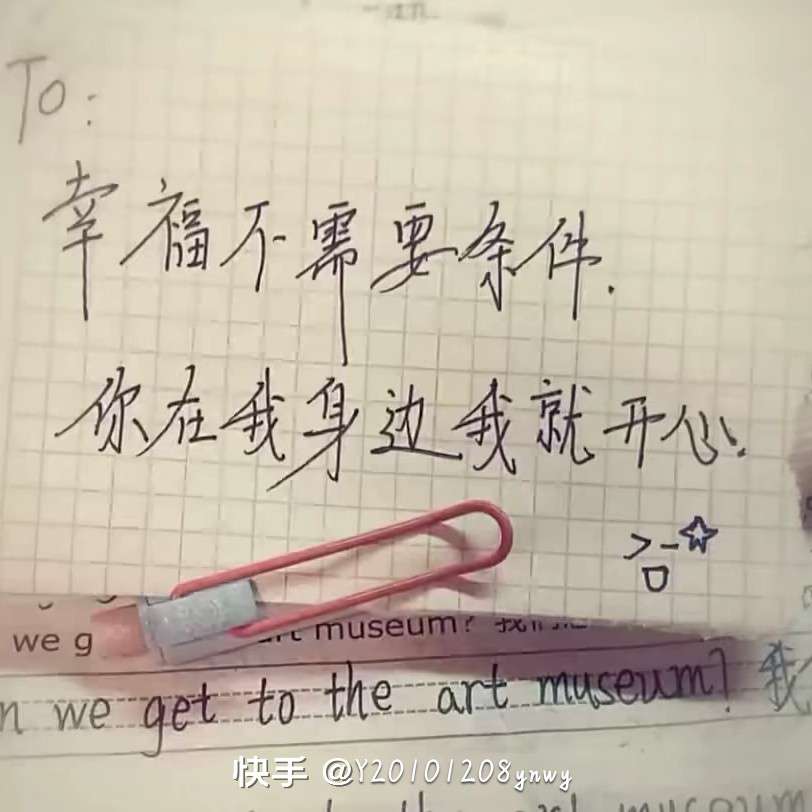 To:
幸福不需要条件.
你在我身边我就开心.
we g art museum?
n we get to the art museum? 我
快手 @Y20101208ynwy